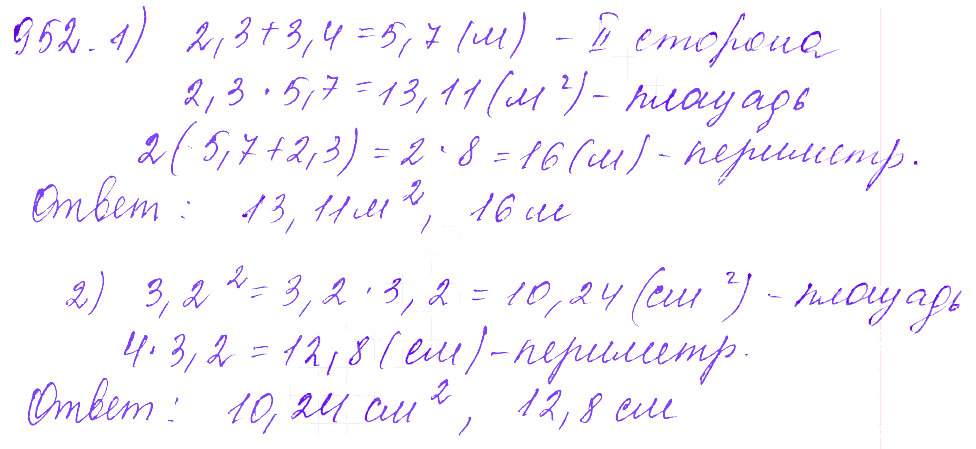 952. 1) 2,3+3,4=5,7(м) - II сторона
2,3·5,7=13,11(м²) - площадь
2(5,7+2,3)=2·8=16(м) - периметр.
Ответ: 13,11м², 16м
2) 3,2²=3,2·3,2=10,24(см²) - площадь
4·3,2=12,8(см) - периметр.
Ответ: 10,24см², 12,8см